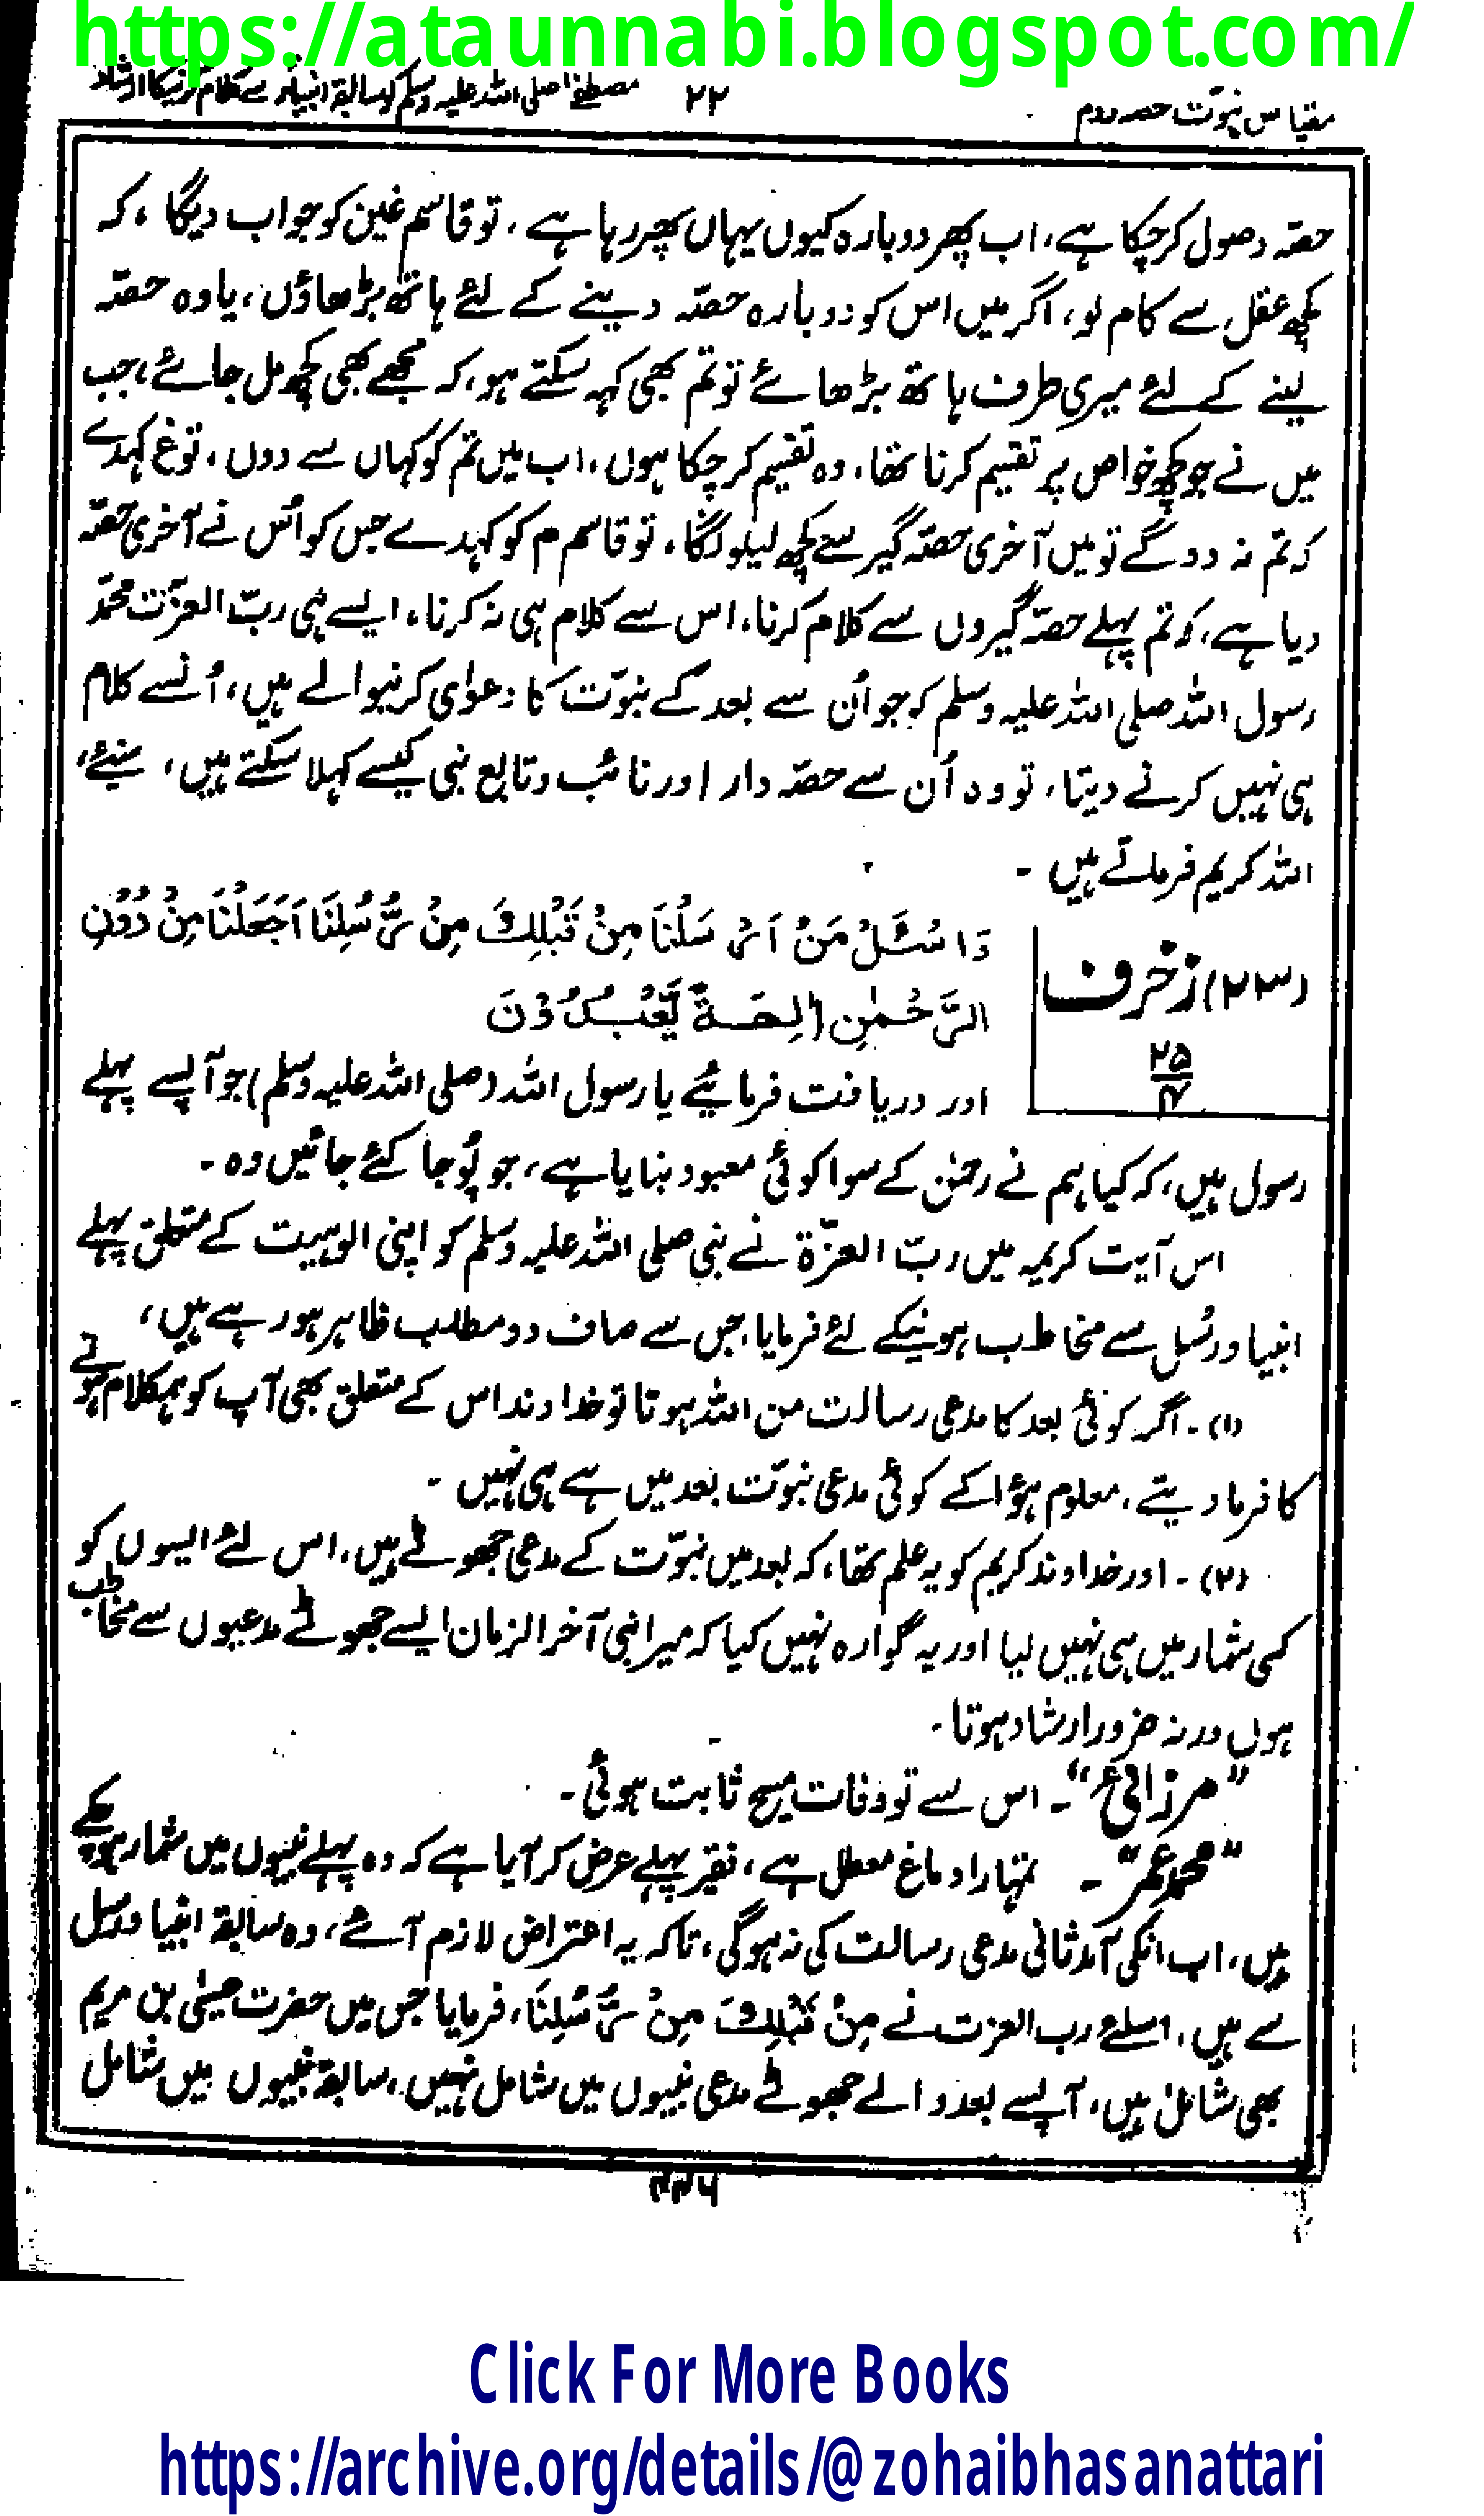 https://ataunnabi.blogspot.com/
مقیاس نبوّت حصہ دوم ۲۲ مصطفےٰ صلی اللہ علیہ وسلم کو سابقہ انبیاء سے کلام کرنیکا ارشاد
حصّہ وصول کرچکا ہے، اب پھر دوبارہ کیوں یہاں پھر رہا ہے، تو قاسم غین کو جواب دیگا، کہ
کچھ عقل سے کام لو، اگر میں اس کو دوبارہ حصّہ دینے کے لئے ہاتھ بڑھاؤں، یا وہ حصّہ
لینے کے لئے میری طرف ہاتھ بڑھائے تو تم بھی کہہ سکتے ہو، کہ مجھے بھی کچھ مل جائے، جب
میں نے جو کچھ خواص پر تقسیم کرنا تھا، وہ تقسیم کرچکا ہوں، اب میں تم کو کہاں سے دوں، تو غ کہدے
کہ تم نہ دوگے تو میں آخری حصّہ گیر سے کچھ لیلونگا، تو قاسم م کو کہدے جس کو اُس نے آخری حصّہ
دیا ہے، کہ تم پہلے حصّہ گیروں سے کلام کرنا، اس سے کلام ہی نہ کرنا، ایسے ہی ربّ العزّت محمّد
رسول اللہ صلی اللہ علیہ وسلم کو جو اُن سے بعد کے نبوّت کا دعوٰی کرنیوالے ہیں، اُنسے کلام
ہی نہیں کرنے دیتا، تو وہ اُن سے حصّہ دار اور نائب و تابع نبی کیسے کہلا سکتے ہیں، سنیئے،
اللہ کریم فرماتے ہیں ۔
(۲۳) زخرف ۲۵/۴
وَاسْئَلْ مَنْ اَرْسَلْنَا مِنْ قَبْلِكَ مِنْ رُّسُلِنَا اَجَعَلْنَا مِنْ دُوْنِ
الرَّحْمٰنِ اٰلِهَةً يُّعْبَدُوْنَ
اور دریافت فرمائیے یا رسول اللہ (صلی اللہ علیہ وسلم) جو آپسے پہلے
رسول ہیں، کہ کیا ہم نے رحمٰن کے سوا کوئی معبود بنایا ہے، جو پُوجا کئے جائیں وہ ۔
اس آیت کریمہ میں ربّ العزّۃ نے نبی صلی اللہ علیہ وسلم کو اپنی الوہیت کے متعلق پہلے
انبیا و رُسل سے مخاطب ہونیکے لئے فرمایا، جس سے صاف دو مطلب ظاہر ہو رہے ہیں،
(۱) ۔ اگر کوئی بعد کا مدعی رسالت من اللہ ہوتا تو خداوند اس کے متعلق بھی آپ کو ہمکلام ہونے
کا فرما دیتے، معلوم ہؤا کے کوئی مدعی نبوّت بعد میں ہے ہی نہیں ۔
(۲) ۔ اور خداوند کریم کو یہ علم تھا، کہ بعد میں نبوّت کے مدعی جھوٹے ہیں، اس لئے ایسوں کو
کسی شمار میں ہی نہیں لیا اور یہ گوارہ نہیں کیا کہ میرا نبی آخرالزمان ایسے جھوٹے مدعیوں سے مخاطب
ہوں ورنہ ضرور ارشاد ہوتا ۔
”مرزائی“ ۔ اس سے تو وفات مسیح ثابت ہوئی ۔
”محمد عمر“ ۔ تمہارا دماغ معطل ہے، فقیر پہلے عرض کر آیا ہے کہ وہ پہلے نبیوں میں شمار ہوچکے
ہیں، اب انکی آمد ثانی مدعی رسالت کی نہ ہوگی، تاکہ یہ اعتراض لازم آئے، وہ سابقہ انبیا و رسل
سے ہیں، اسلئے رب العزت نے مِنْ قَبْلِكَ مِنْ رُّسُلِنَا، فرمایا جس میں حضرت عیسٰی بن مریم
بھی شامل ہیں، آپسے بعد والے جھوٹے مدعی نبیوں میں شامل نہیں، سابقہ نبیوں میں شامل
۴۴۶
Click For More Books
https://archive.org/details/@zohaibhasanattari